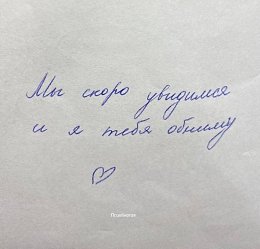 Мы скоро увидимся
и я тебя обниму